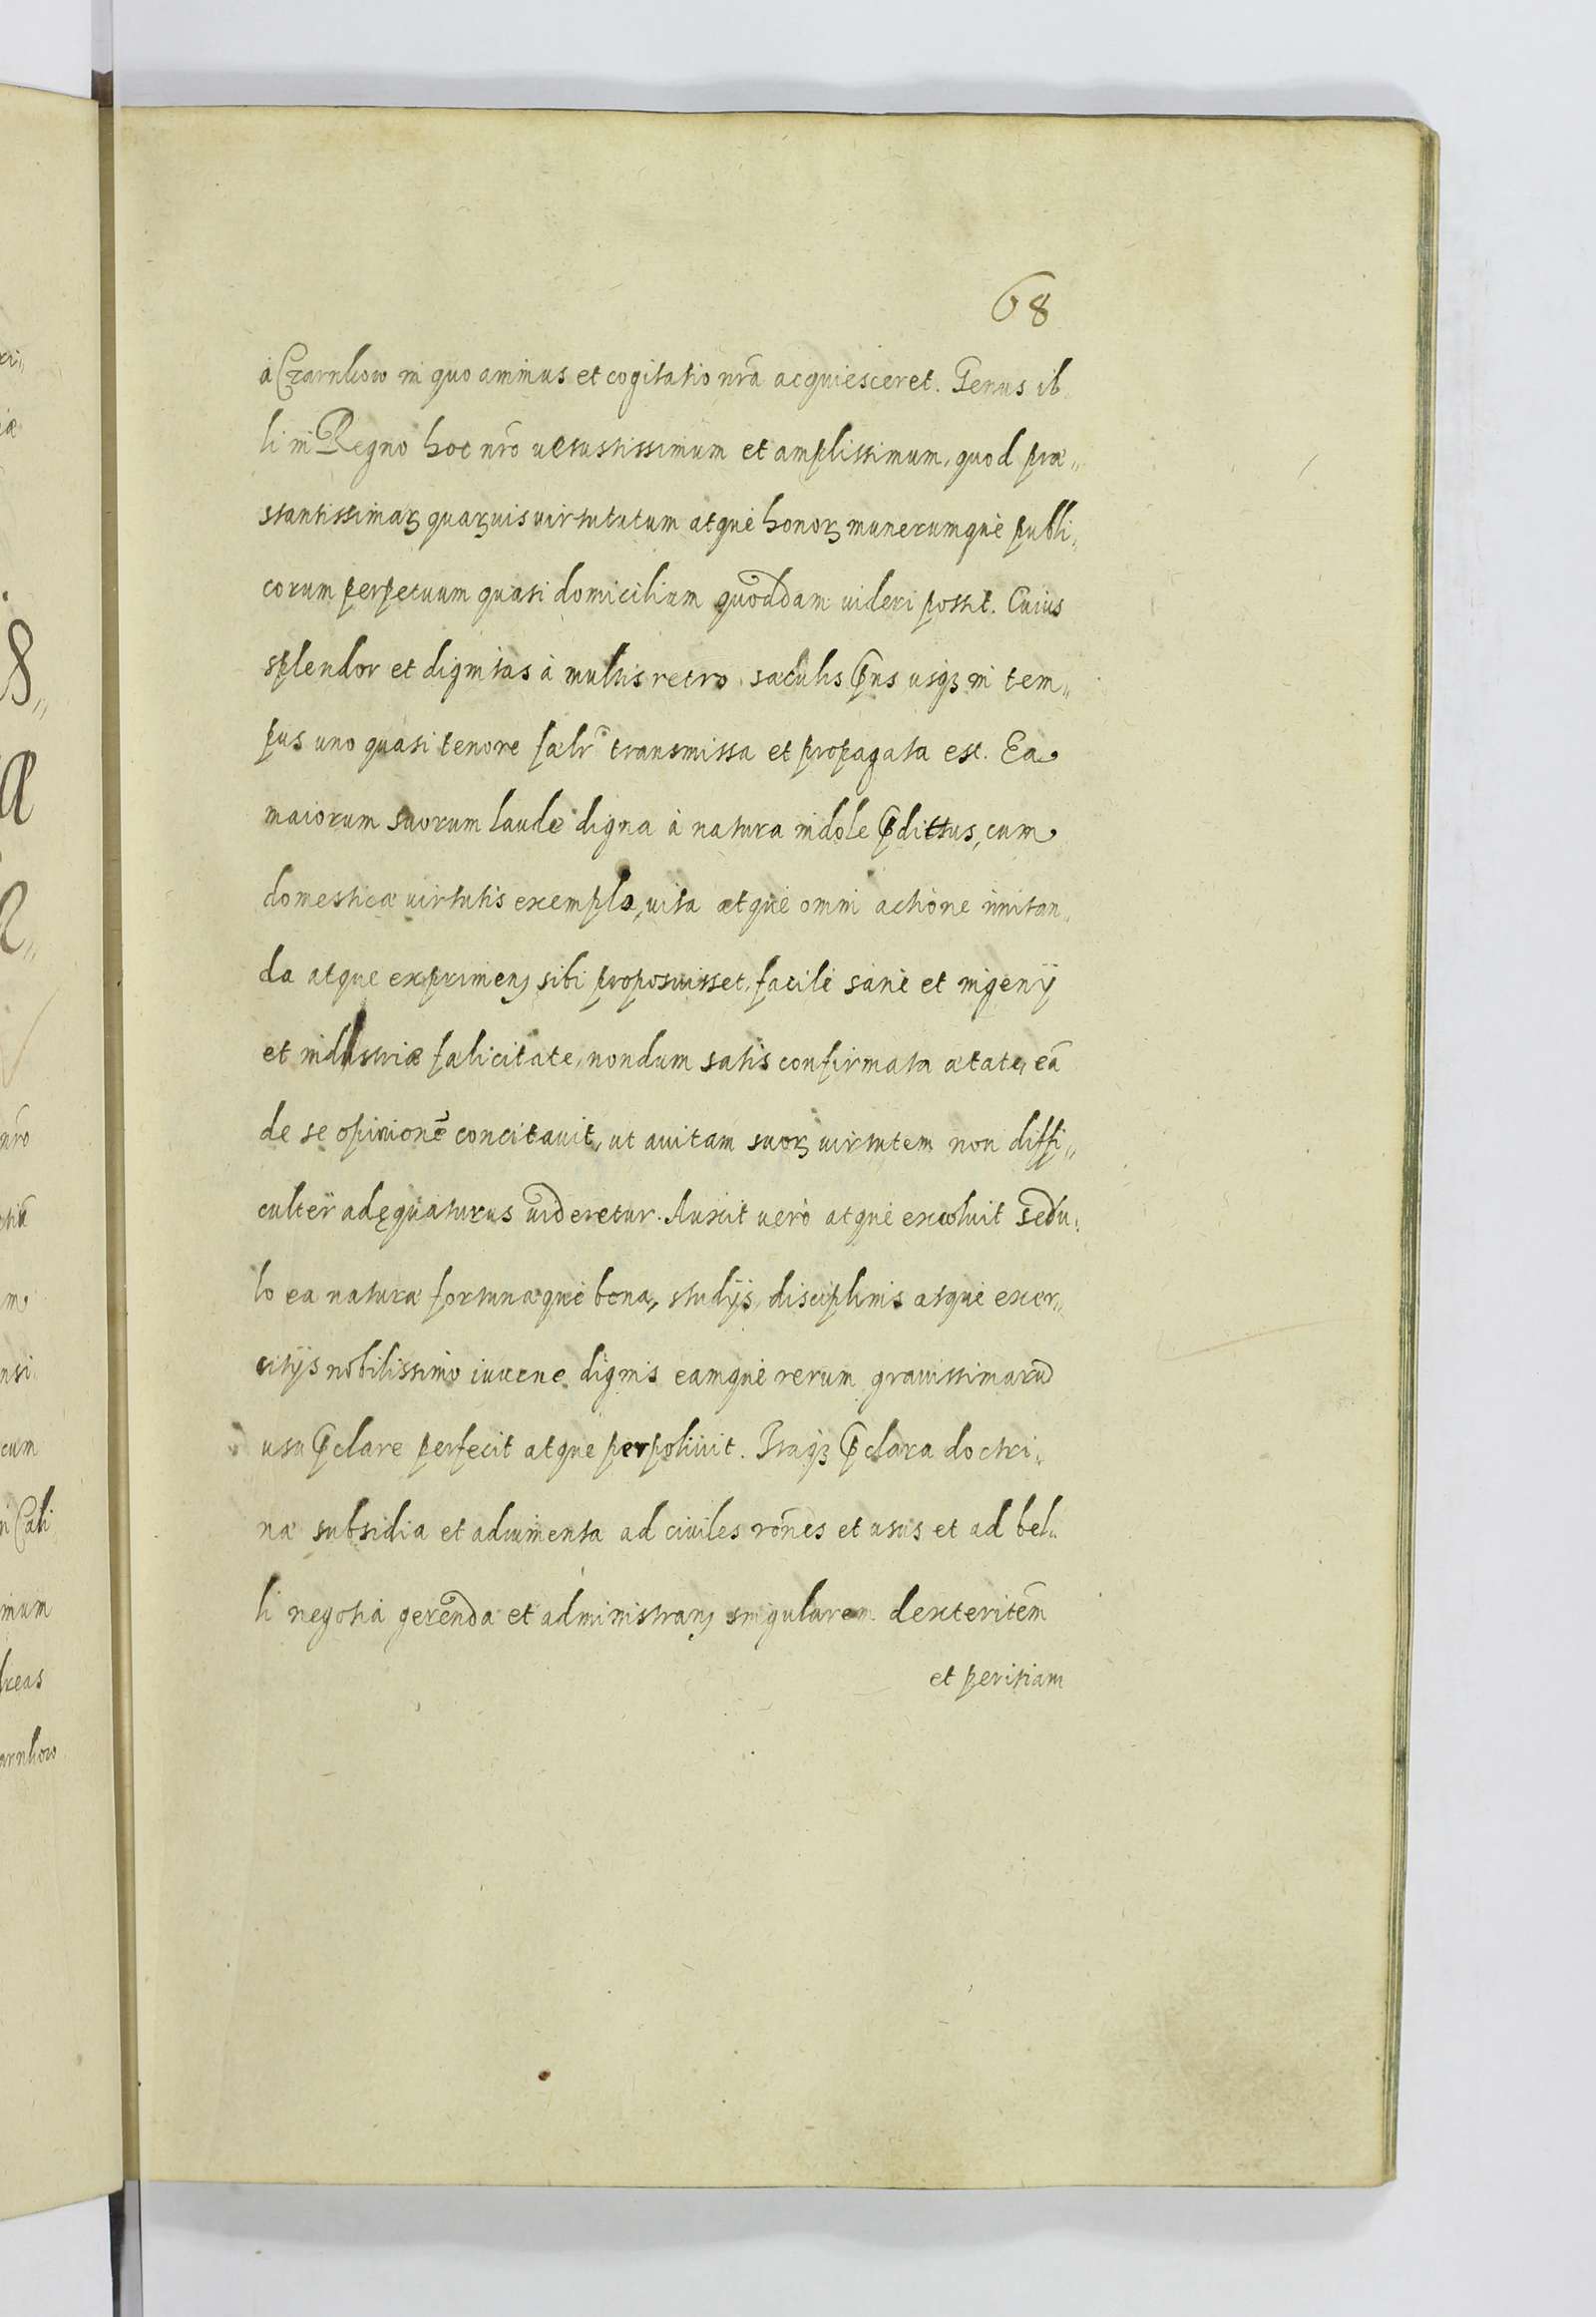 68
à Czarnkow in quo animus et cogitatio nrã acquiesceret. Genus il,
li in Regno hoc nrõ uetustissimum et amplissimum, quod præ,,
stantissimaꝝ quaꝝuis uirtututum atquè honoꝝ munerumquè publi,,
corum perpetuum quasi domicilium quoddam uideri possit. Cuius
splendor et dignitas à multis retro sæculis p̃ns usqꝫ in tem,,
pus uno quasi tenore fælr̃ transmissa et propagata est. Ea
maiorum suorum laude digna à natura indole p̃dittus, cum
domesticæ uirtutis exempla, uita atquè omni actione imitan,,
da atque exprimenꝫ sibi proposuisset, facilè sanè et ingenÿ
et industriæ fælicitate, nondum satis confirmata ætate, eã
de se opinionẽ concitauit, ut auitam suoꝝ uirtutem non diffi,,
culter adęquaturus uideretur. Auxit uerò atquè excoluit sedu,,
lo ea naturæ fortunæquè bona, studÿs, disciplinis atquè exer,,
citÿs nobilissimo iuuene dignis eamquè rerum grauissimarũ
usu p̃clare perfecit atque perpoliuit. Itaqꝫ p̃clara doctri,,
næ subsidia et adiumenta ad ciuiles rõnes et usus et ad bel,,
li negotia gerenda et administranꝫ singularem dexteritẽm
et peritiam
ri,,
iæ
nrõ
m
nsi
cum
n Cali
mum
reas
arnkow